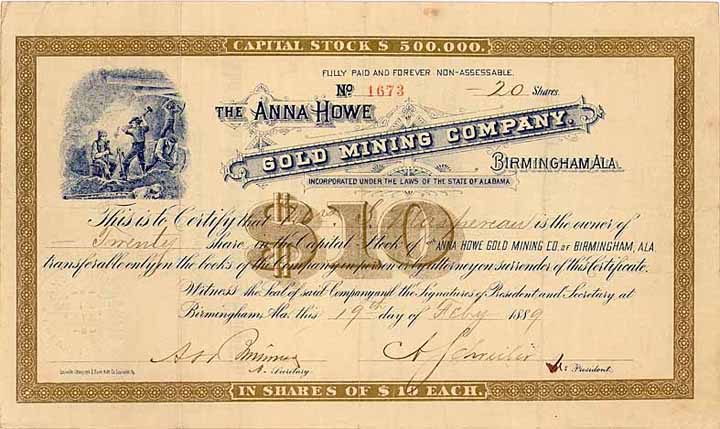 CAPITAL STOCK $ 500.000.
FULLY PAID AND FOREVER NON-ASSESSABLE.
No 1673 20 Shares
THE ANNA HOWE
GOLD MINING COMPANY.
BIRMINGHAM, ALA.
INCORPORATED UNDER THE LAWS OF THE STATE OF ALABAMA
$10
This is to Certify that is the owner of
Twenty share in the Capital Stock of THE ANNA HOWE GOLD MINING CO. OF BIRMINGHAM, ALA.
transferable only on the books of the Company in person or by attorney on surrender of this Certificate.
Witness the Seal of said Company and the Signatures of President and Secretary at
Birmingham, Ala. this 19th day of Feby 1889
A. Schreiber
Secretary. President.
IN SHARES OF $ 10 EACH.